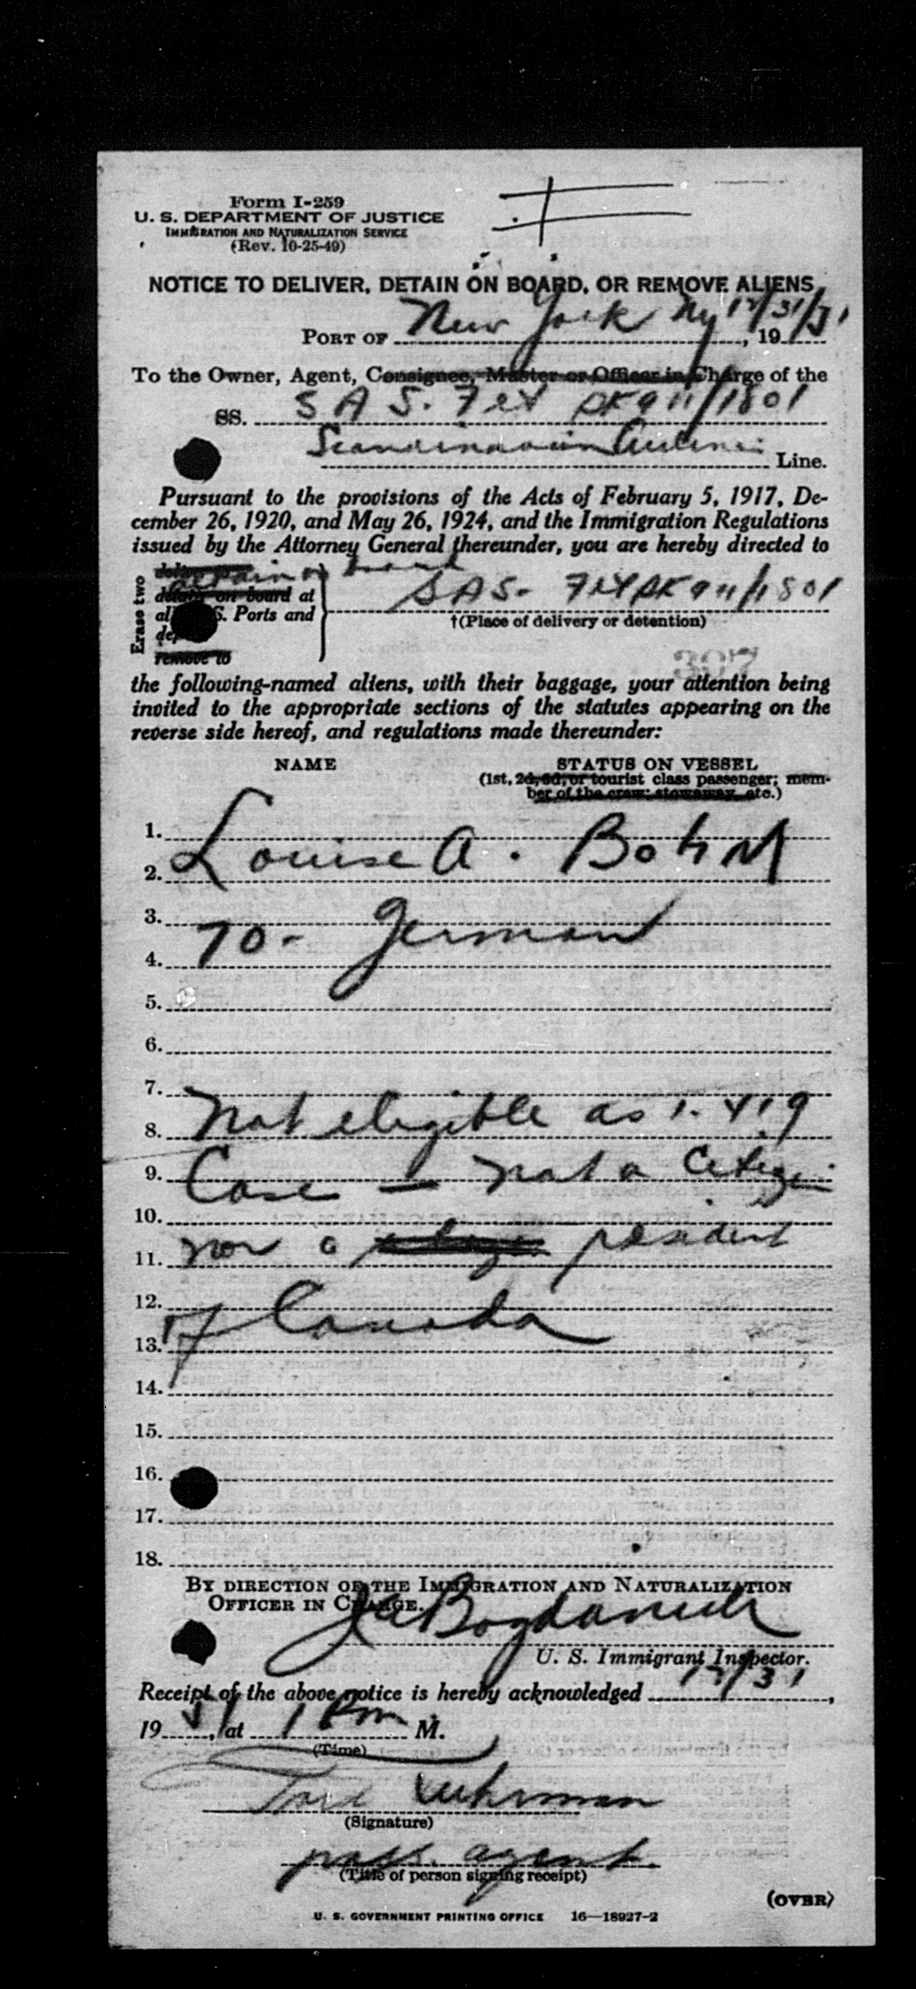 Form I-259
U. S. DEPARTMENT OF JUSTICE
IMMIGRATION AND NATURALIZATION SERVICE
(Rev. 10-25-49)
NOTICE TO DELIVER, DETAIN ON BOARD, OR REMOVE ALIENS
PORT OF New York NY, 12/31/51, 19
To the Owner, Agent, Consignee, Master or Officer in Charge of the
SS. SAS. 911/1801
Scandinavian Airlines Line.
Pursuant to the provisions of the Acts of February 5, 1917, De-
cember 26, 1920, and May 26, 1924, and the Immigration Regulations
issued by the Attorney General thereunder, you are hereby directed to
Erase two
detain on board
detain on board at
S. Ports and
remove to
SAS. 911/1801
†(Place of delivery or detention)
397
the following-named aliens, with their baggage, your attention being
invited to the appropriate sections of the statutes appearing on the
reverse side hereof, and regulations made thereunder:
NAME STATUS ON VESSEL
(1st, 2d, 3d, or tourist class passenger; mem-
ber of the crew; stowaway, etc.)
1.
2. Louise A. Bohm
3.
4. 70- German
5.
6.
7.
8. Not eligible as 1-419
9. Case — not a Citizen
10.
11. nor a resident
12.
13. of Canada
14.
15.
16.
17.
18.
BY DIRECTION OF THE IMMIGRATION AND NATURALIZATION
OFFICER IN CHARGE.
U. S. Immigrant Inspector.
Receipt of the above notice is hereby acknowledged 12/31,
19 51, at 1 Pm M.
(Time)
(Signature)
pass. agent.
(Title of person signing receipt)
(OVER)
U. S. GOVERNMENT PRINTING OFFICE 16—18927-2